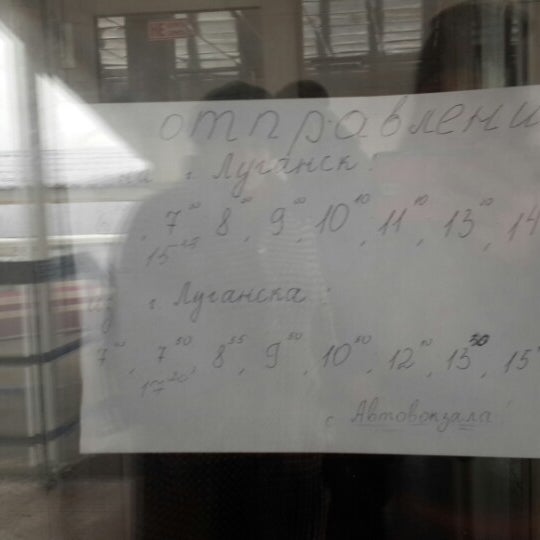 НЕ
отправлени
на г. Луганск:
7⁰⁰, 8, 9, 10¹⁰, 11¹⁰, 13, 14
15
из г. Луганска:
7, 7⁵⁰, 8⁵⁵, 9⁵⁰, 10⁵⁰, 12, 13³⁰, 15
17²⁰
с Автовокзала!